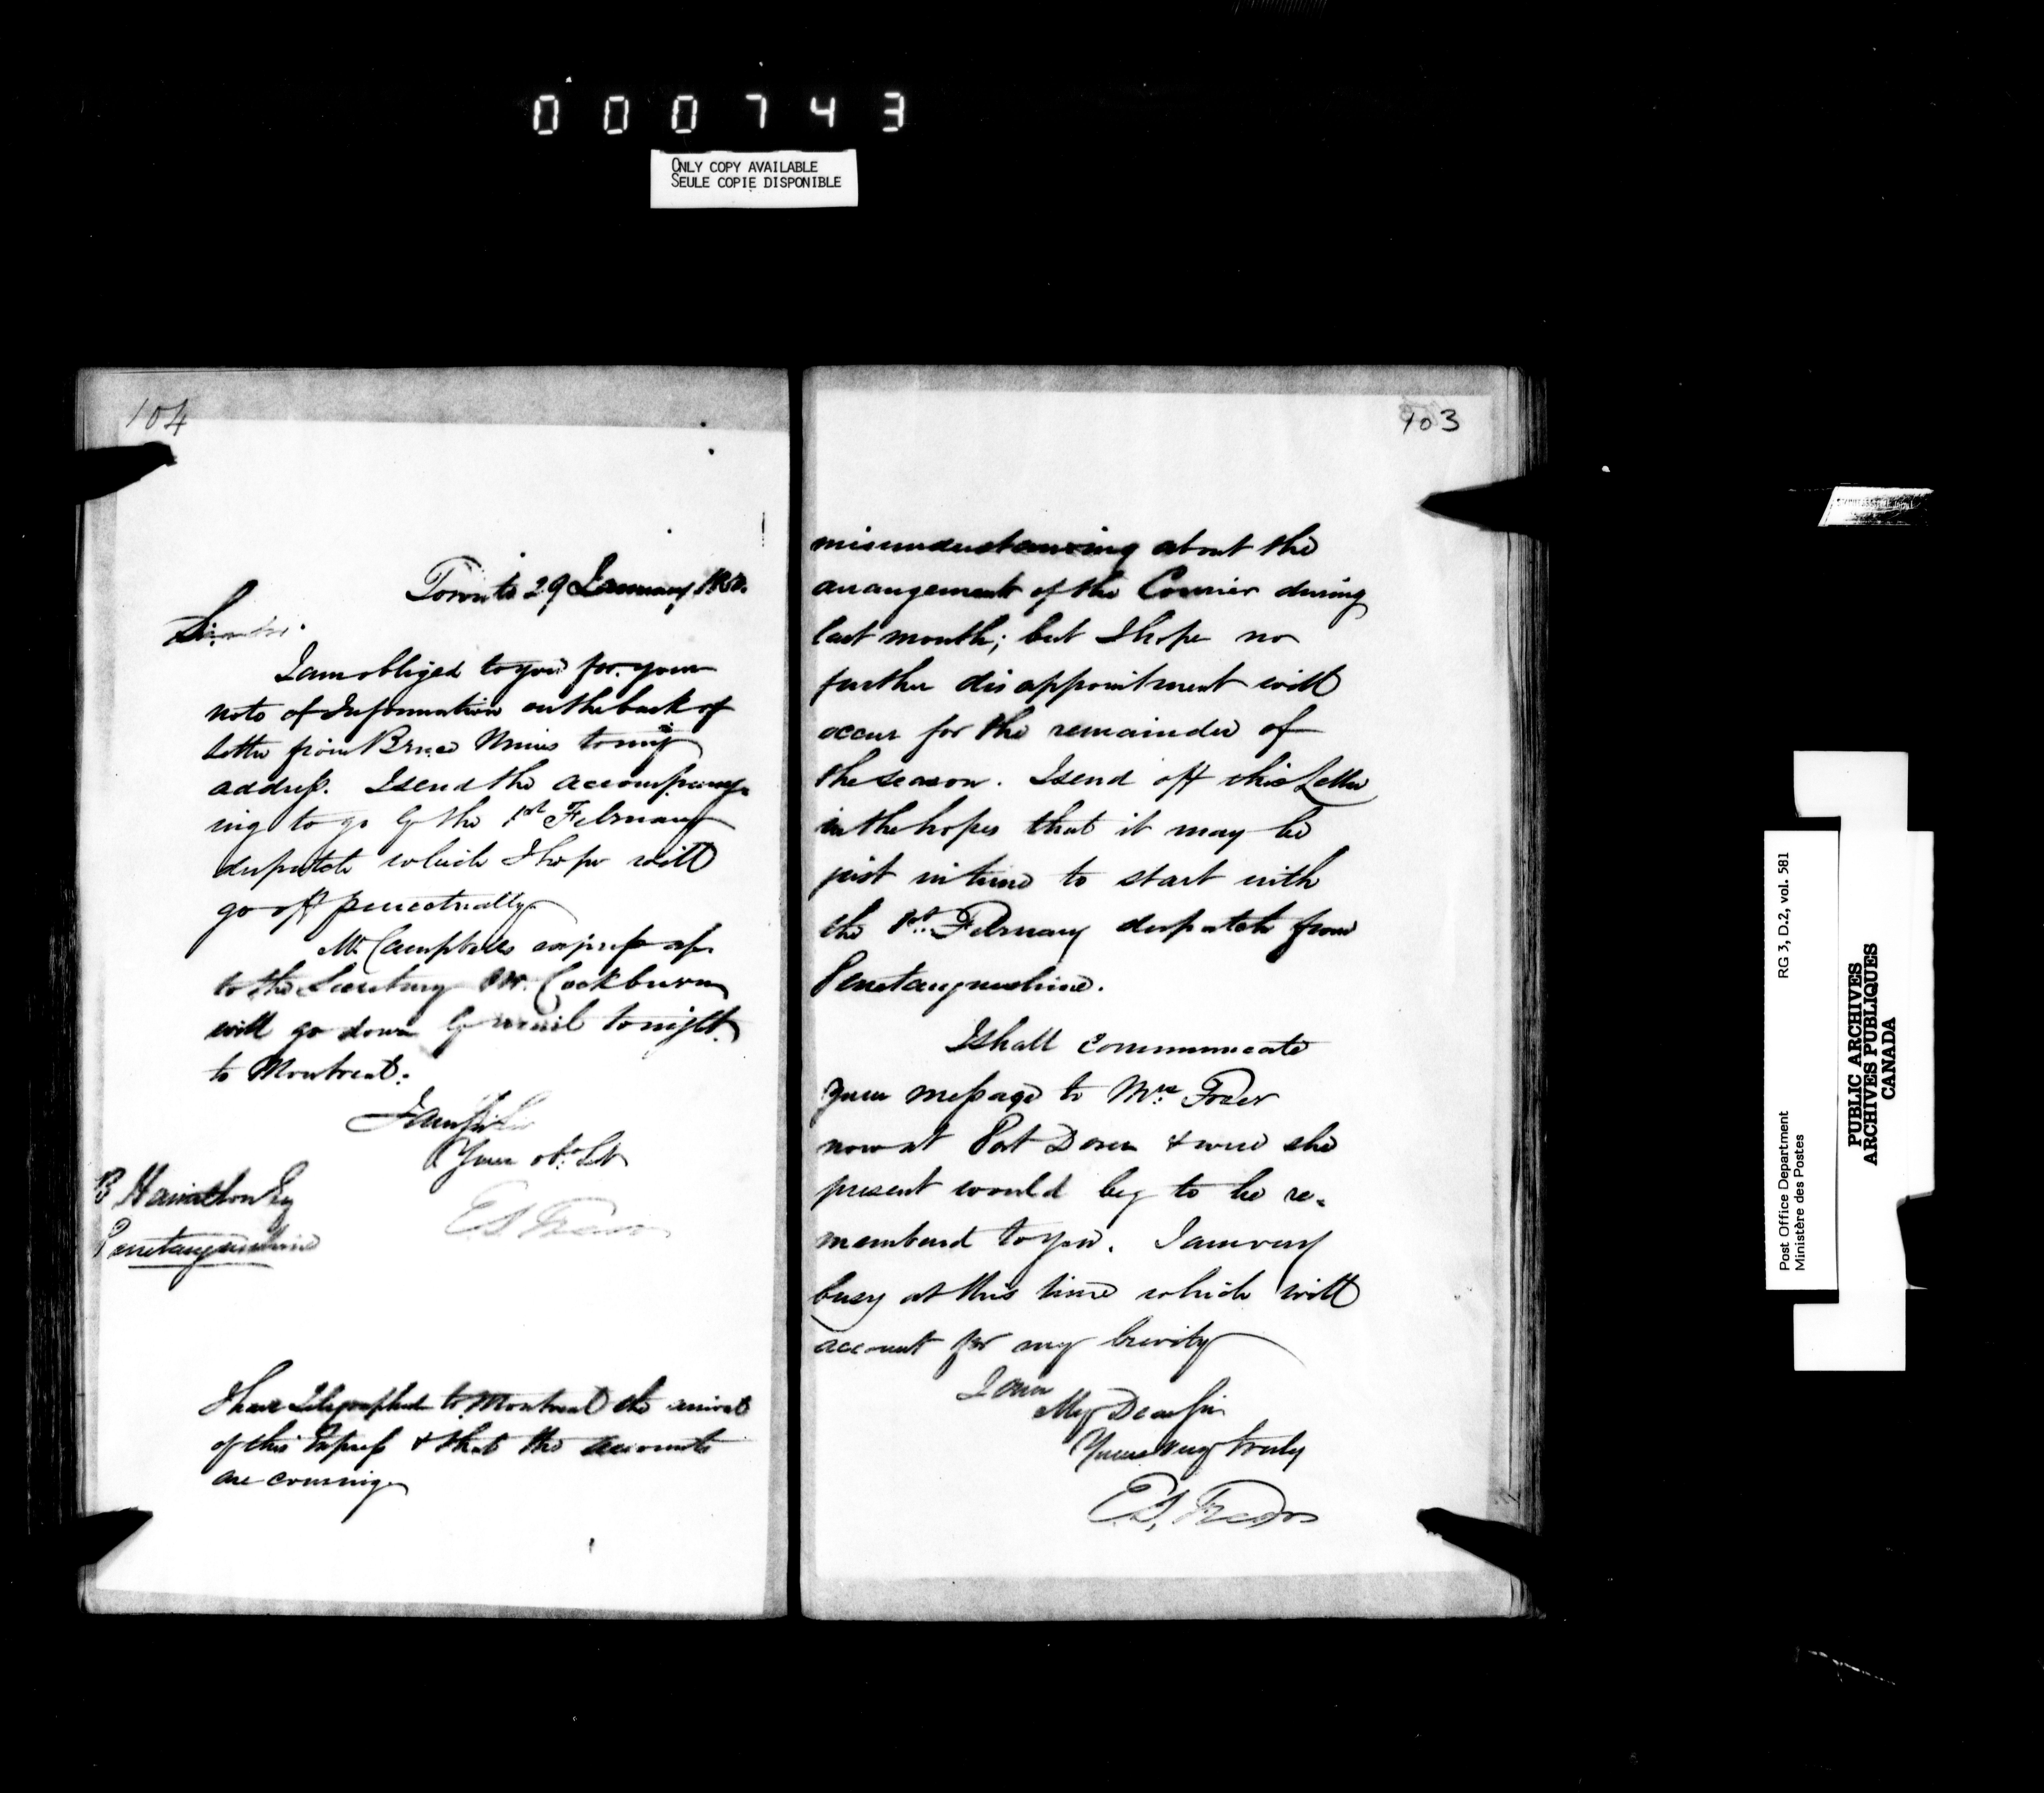 000743
ONLY COPY AVAILABLE
SEULE COPIE DISPONIBLE
104
Toronto 29 January
Sir
I am obliged to you for your
note of Information on the back of
letter from Bruce Mines to my
address. I send the accompany-
ing to go by the 1st February
despatch which I hope will
go off punctually
Mr Campbells express
to the Secretary Mr. Cockburn
will go down by mail tonight
to Montreal.
I am Sir
Your obt. Svt
B Hamilton Esq
Penetanguishine
I have telegraphed to Montreal the arrival
of this Express & that the accounts
are coming
103
misunderstanding about the
arrangement of the Courier during
last month; but I hope no
further disappointment will
occur for the remainder of
the season. I send off this Letter
in the hopes that it may be
just in time to start with
the 1st. February despatch from
Penetanguishine.
I shall communicate
your message to Mrs.
now at Port Dover & were she
present would beg to be re-
membered to you. I am very
busy at this time which will
account for my brevity
I am
My Dear Sir
Yours very truly
RG 3, D.2, vol. 581
Post Office Department
Ministère des Postes
PUBLIC ARCHIVES
ARCHIVES PUBLIQUES
CANADA